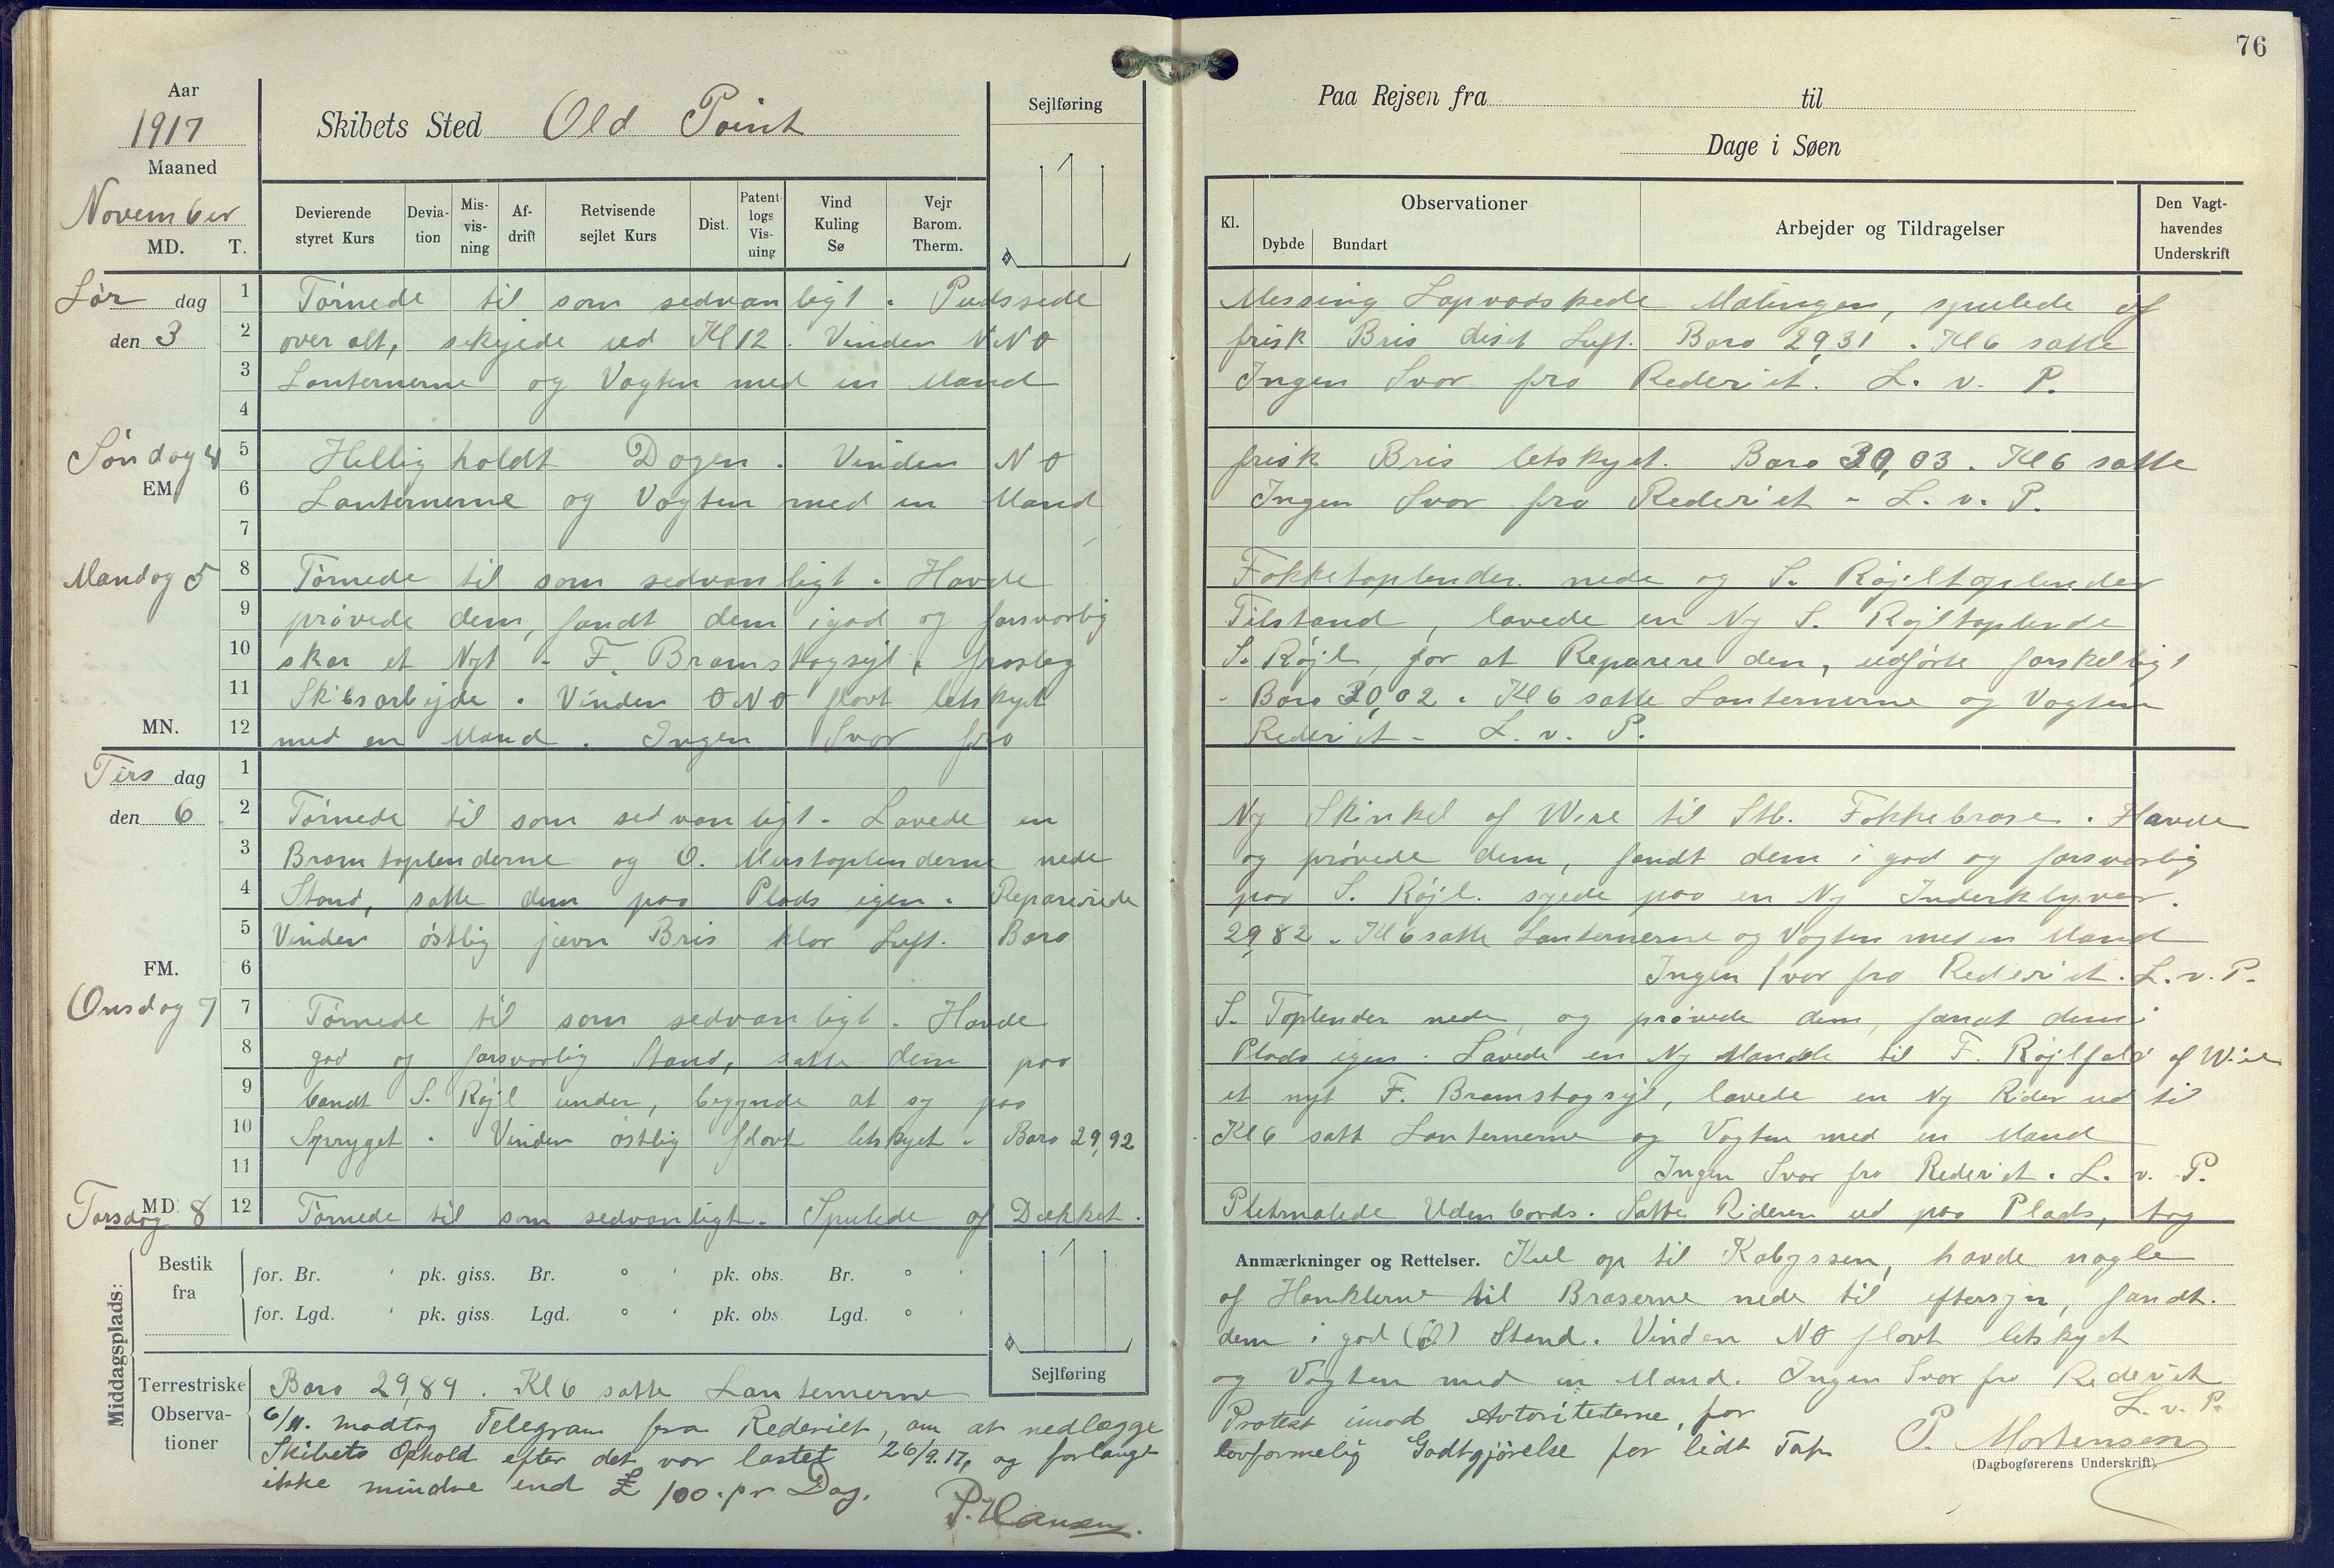 76
Aar
1917
Maaned
November
MD. T.
Skibets Sted Old Point
Sejlføring
Devierende styret Kurs
Deviation
Misvisning
Afdrift
Retvisende sejlet Kurs
Dist.
Patentlogs Visning
Vind Kuling Sø
Vejr Barom. Therm.
Paa Rejsen fra til
Dage i Søen
Kl.
Observationer
Dybde Bundart
Arbejder og Tildragelser
Den Vagthavendes Underskrift
Lør dag 1 Törnede til som sedvanligt. Pudssede Messing Lapvadskede Malingen, spulede af
den 3 2 over alt, skejede ud Kl 12. Vinden NNO frisk Bris diset Luft. Baro 29,31. Kl 6 satte
3 Lanternerne og Vagten med en Mand Ingen Svar fra Rederiet. L. v. P.
4
Söndag 4 5 Hellig holdt Dagen. Vinden NO frisk Bris letskyet. Baro 30,03. Kl 6 satte
EM 6 Lanternerne og Vagten med en Mand Ingen Svar fra Rederiet - L. v. P.
7
Mandag 5 8 Törnede til som sedvanligt. Havde Fokketoplender nede og S. Röjltoplender
9 prövede dem, fandt dem i god og forsvarlig Tilstand, lavede en Ny S. Röjltoplende
10 skar et Nyt - F. Bramstagsejl, froslog S. Röjl, for at Reparere den, udförte forskelligt
11 Skibsarbejde. Vinden ONO flovt letskyet - Baro 30,02. Kl 6 satte Lanternerne og Vagten
MN. 12 med en Mand. Ingen Svar fra Rederiet - L. v. P.
Tirs dag 1
den 6 2 Törnede til som sedvanligt. Lavede en Ny Skinkel af Wire til Stb. Fokkebrase. Havde
3 Bramtoplenderne og O. Merstoplenderne nede og prövede dem, fandt dem i god og forsvarlig
4 Stand, satte dem paa Plads igen. Reparerede paa S. Röjl. syede paa en Ny Inderklyver.
5 Vinden östlig jævn Bris klar Luft. Baro 29,82. Kl 6 satte Lanternerne og Vagten med en Mand
FM. 6 Ingen Svar fra Rederiet. L. v. P.
Onsdag 7 7 Törnede til som sedvanligt. Havde S. Toplender nede, og prövede dem, fandt dem i
8 god og forsvarlig Stand, satte dem paa Plads igen. Lavede en Ny Mandle til F. Röjlfald af Wire
9 bandt S. Röjl under, begynde at sy paa et nyt F. Bramstagsejl, lavede en Ny Rider ud til
10 Spryget. Vinden östlig flovt letskyet. Baro 29,92 Kl 6 satt Lanternerne og Vagten med en Mand
11 Ingen Svar fra Rederiet. L. v. P.
Torsdag 8 MD. 12 Törnede til som sedvanligt. Spulede af Dækket. Pletmalede Udenbords. Satte Rideren ud paa Plads, tog
Middagsplads:
Bestik fra
for. Br. ' pk. giss. Br. ° ' pk. obs. Br. ° '
for. Lgd. ' pk. giss. Lgd. ° ' pk. obs. Lgd. ° '
Sejlføring
Anmærkninger og Rettelser. Kul op til Kabyssen, havde nogle
af Hanklerne til Braserne nede til eftersyn, fandt.
dem i god Stand. Vinden NO flovt letskyet
Terrestriske Observationer
Baro 29,89. Kl 6 satte Lanternerne og Vagten med en Mand. Ingen Svar fra Rederiet
L. v. P.
6/11. modtog Telegram fra Rederiet, om at nedlægge Protest imod Avtoriteterne, for
Skibets Ophold efter det var lastet 26/9.17, og forlangt lovformelig Godtgjörelse for lidt Tap
ikke mindre end £ 100. pr Dag.
P. Hansen.
P. Mortensen
(Dagbogførerens Underskrift).